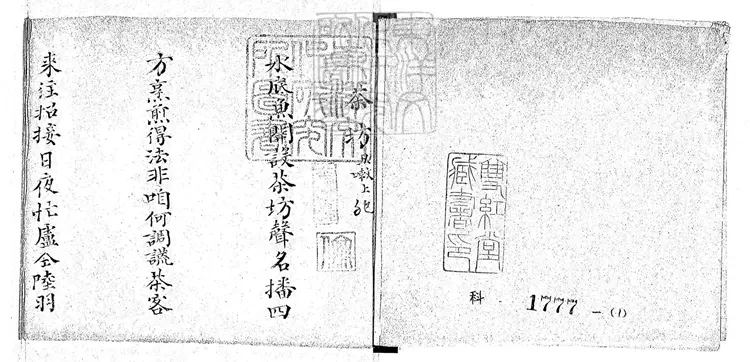 雙紅堂
藏書印
科 1777 —(1)
茶坊
水底魚開設茶坊聲名播四
方烹煎得法非咱何調謊茶客
來往招接日夜忙盧仝陸羽